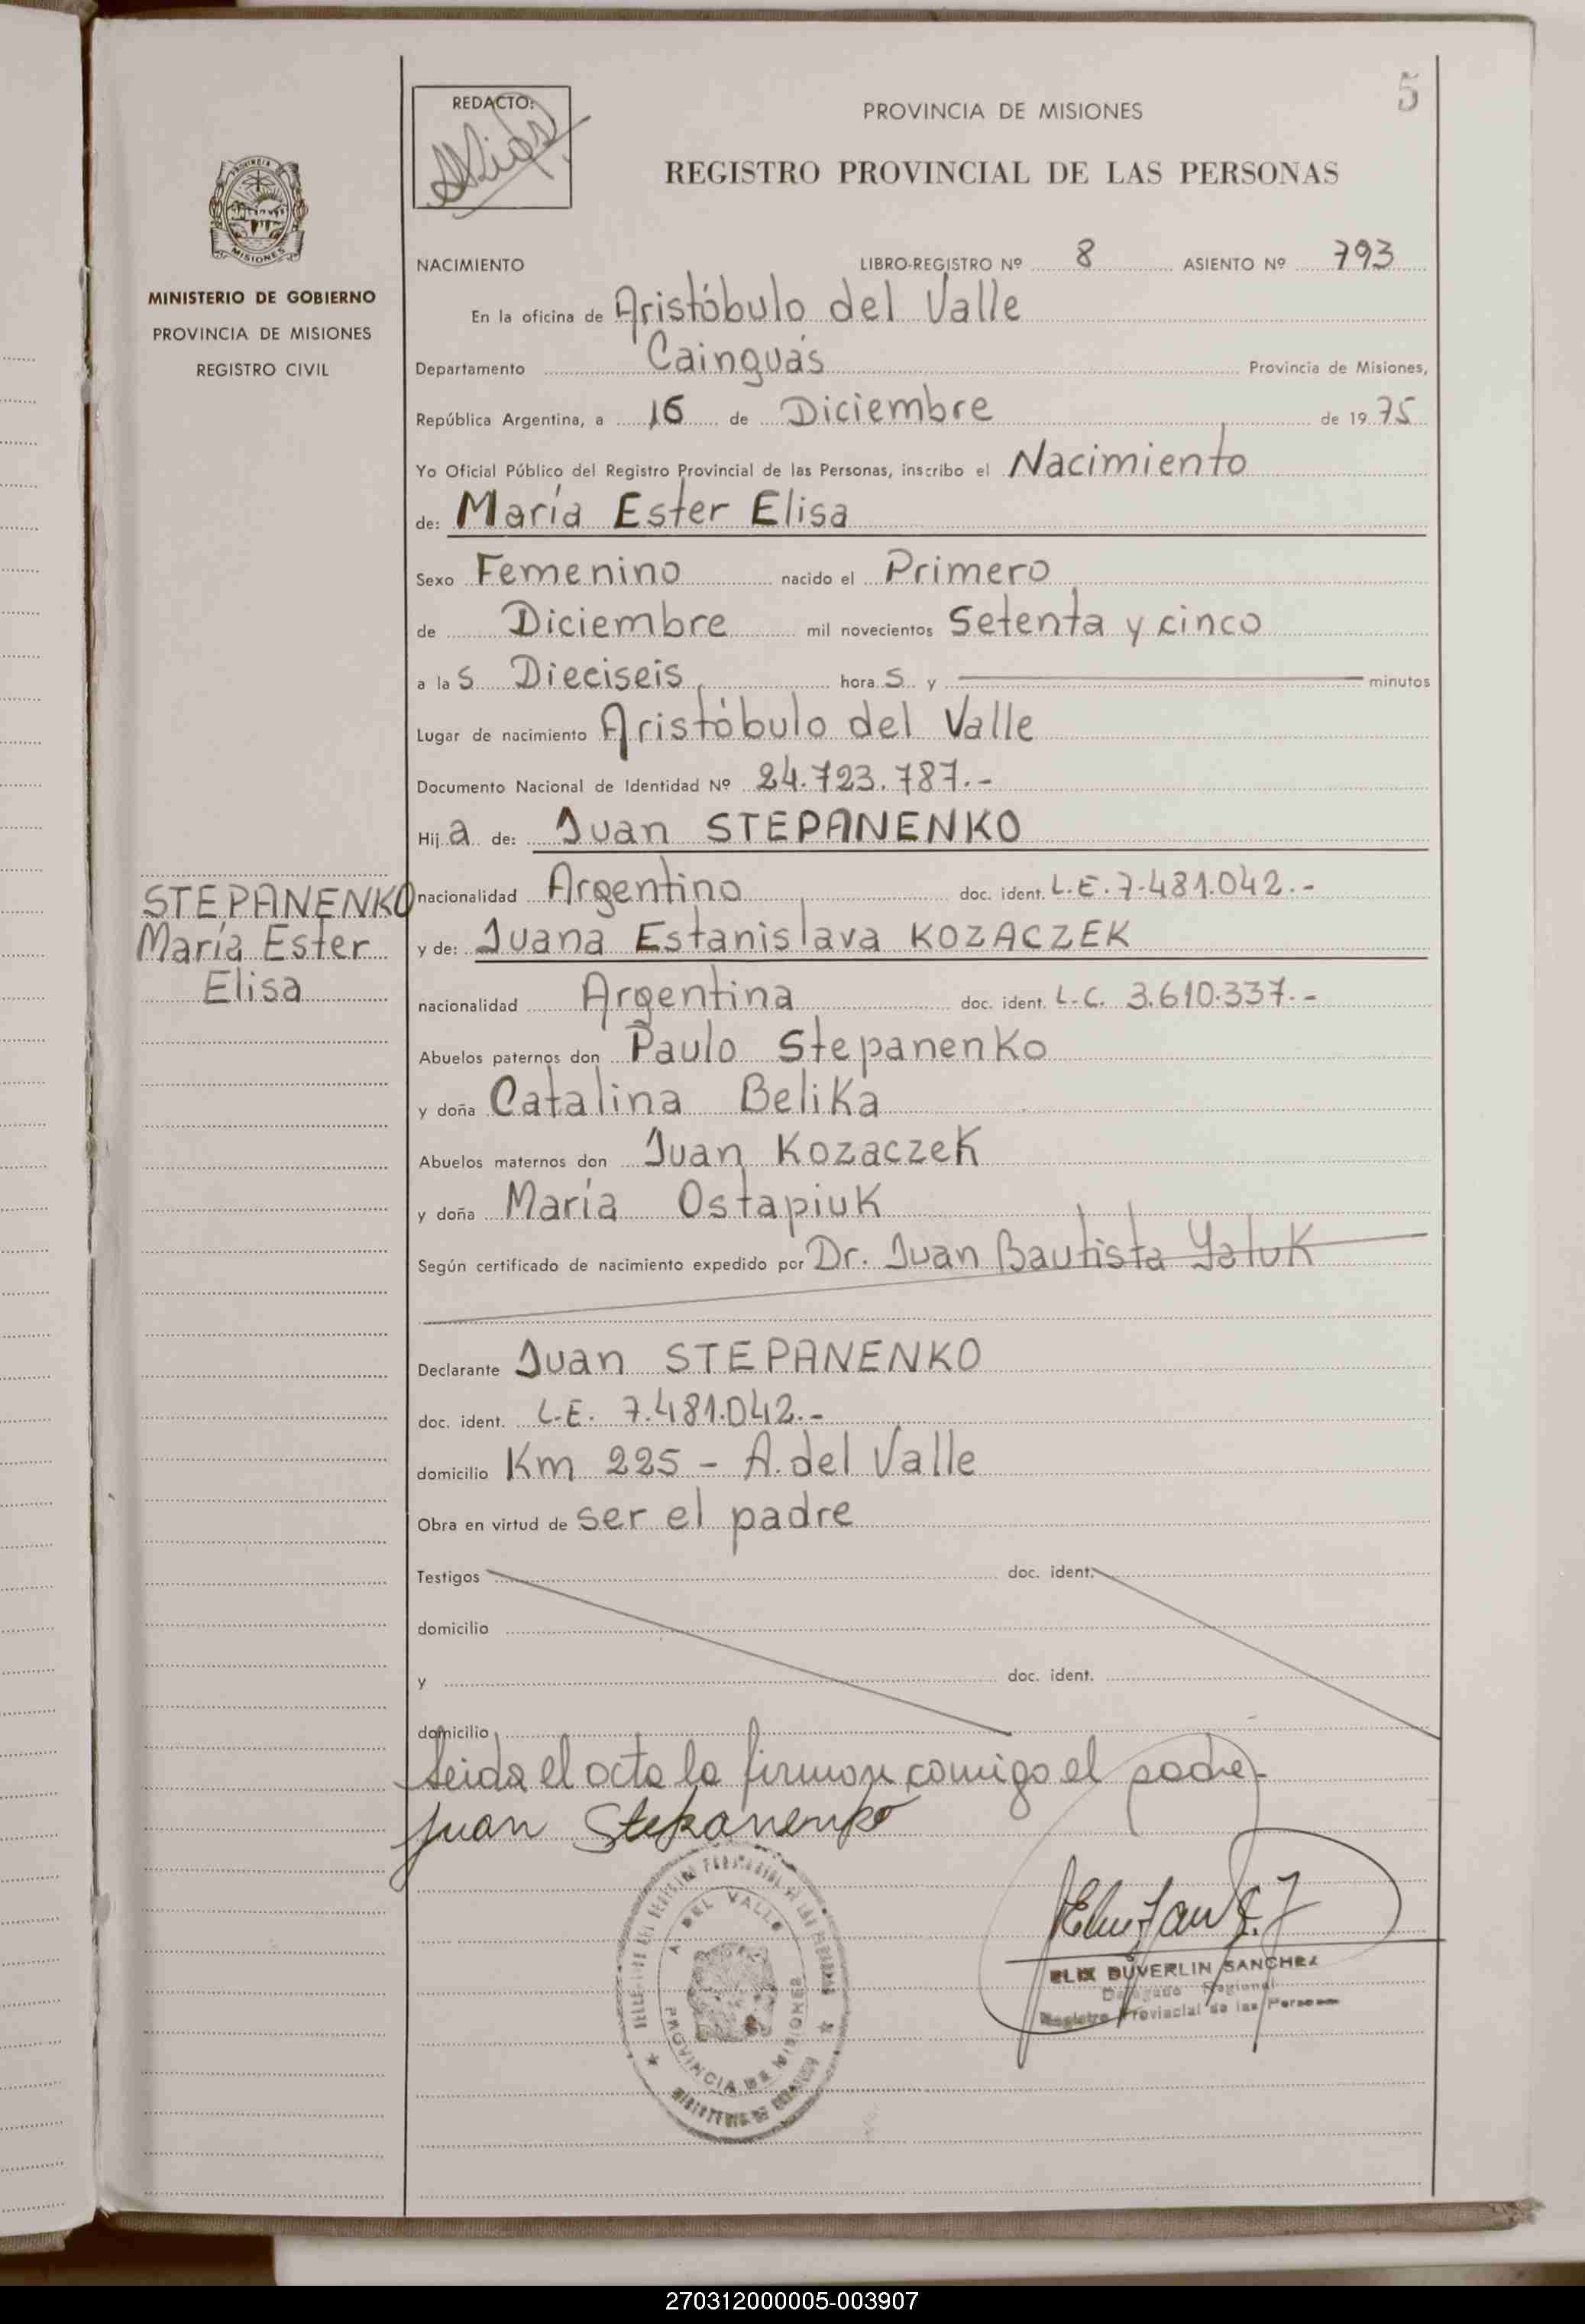 5
REDACTO:
PROVINCIA DE MISIONES
REGISTRO PROVINCIAL DE LAS PERSONAS
PROVINCIA
MISIONES
MINISTERIO DE GOBIERNO
PROVINCIA DE MISIONES
REGISTRO CIVIL
NACIMIENTO LIBRO-REGISTRO Nº 8 ASIENTO Nº 793
En la oficina de Aristóbulo del Valle
Departamento Cainguás Provincia de Misiones,
República Argentina, a 16 de Diciembre de 1975
Yo Oficial Público del Registro Provincial de las Personas, inscribo el Nacimiento
de: María Ester Elisa
Sexo Femenino nacido el Primero
de Diciembre mil novecientos Setenta y cinco
a las Dieciseis horas y minutos
Lugar de nacimiento Aristóbulo del Valle
Documento Nacional de Identidad Nº 24.723.787.-
Hija de: Juan STEPANENKO
STEPANENKO
María Ester
Elisa
nacionalidad Argentino doc. ident. L.E. 7.481.042.-
y de: Juana Estanislava KOZACZEK
nacionalidad Argentina doc. ident. L.C. 3.610.337.-
Abuelos paternos don Paulo Stepanenko
y doña Catalina Belika
Abuelos maternos don Juan Kozaczek
y doña María Ostapiuk
Según certificado de nacimiento expedido por Dr. Juan Bautista Yaluk
Declarante Juan STEPANENKO
doc. ident. L.E. 7.481.042.-
domicilio Km 225 - A. del Valle
Obra en virtud de ser el padre
Testigos doc. ident.
domicilio
y doc. ident.
domicilio
Leida el acta la firman comigo el padre.-
Juan Stepanenko
A. DEL VALLE
PROVINCIA DE MISIONES
ELIX DUVERLIN SANCHEZ
Delegado Regional
Registro Provincial de las Personas
270312000005-003907